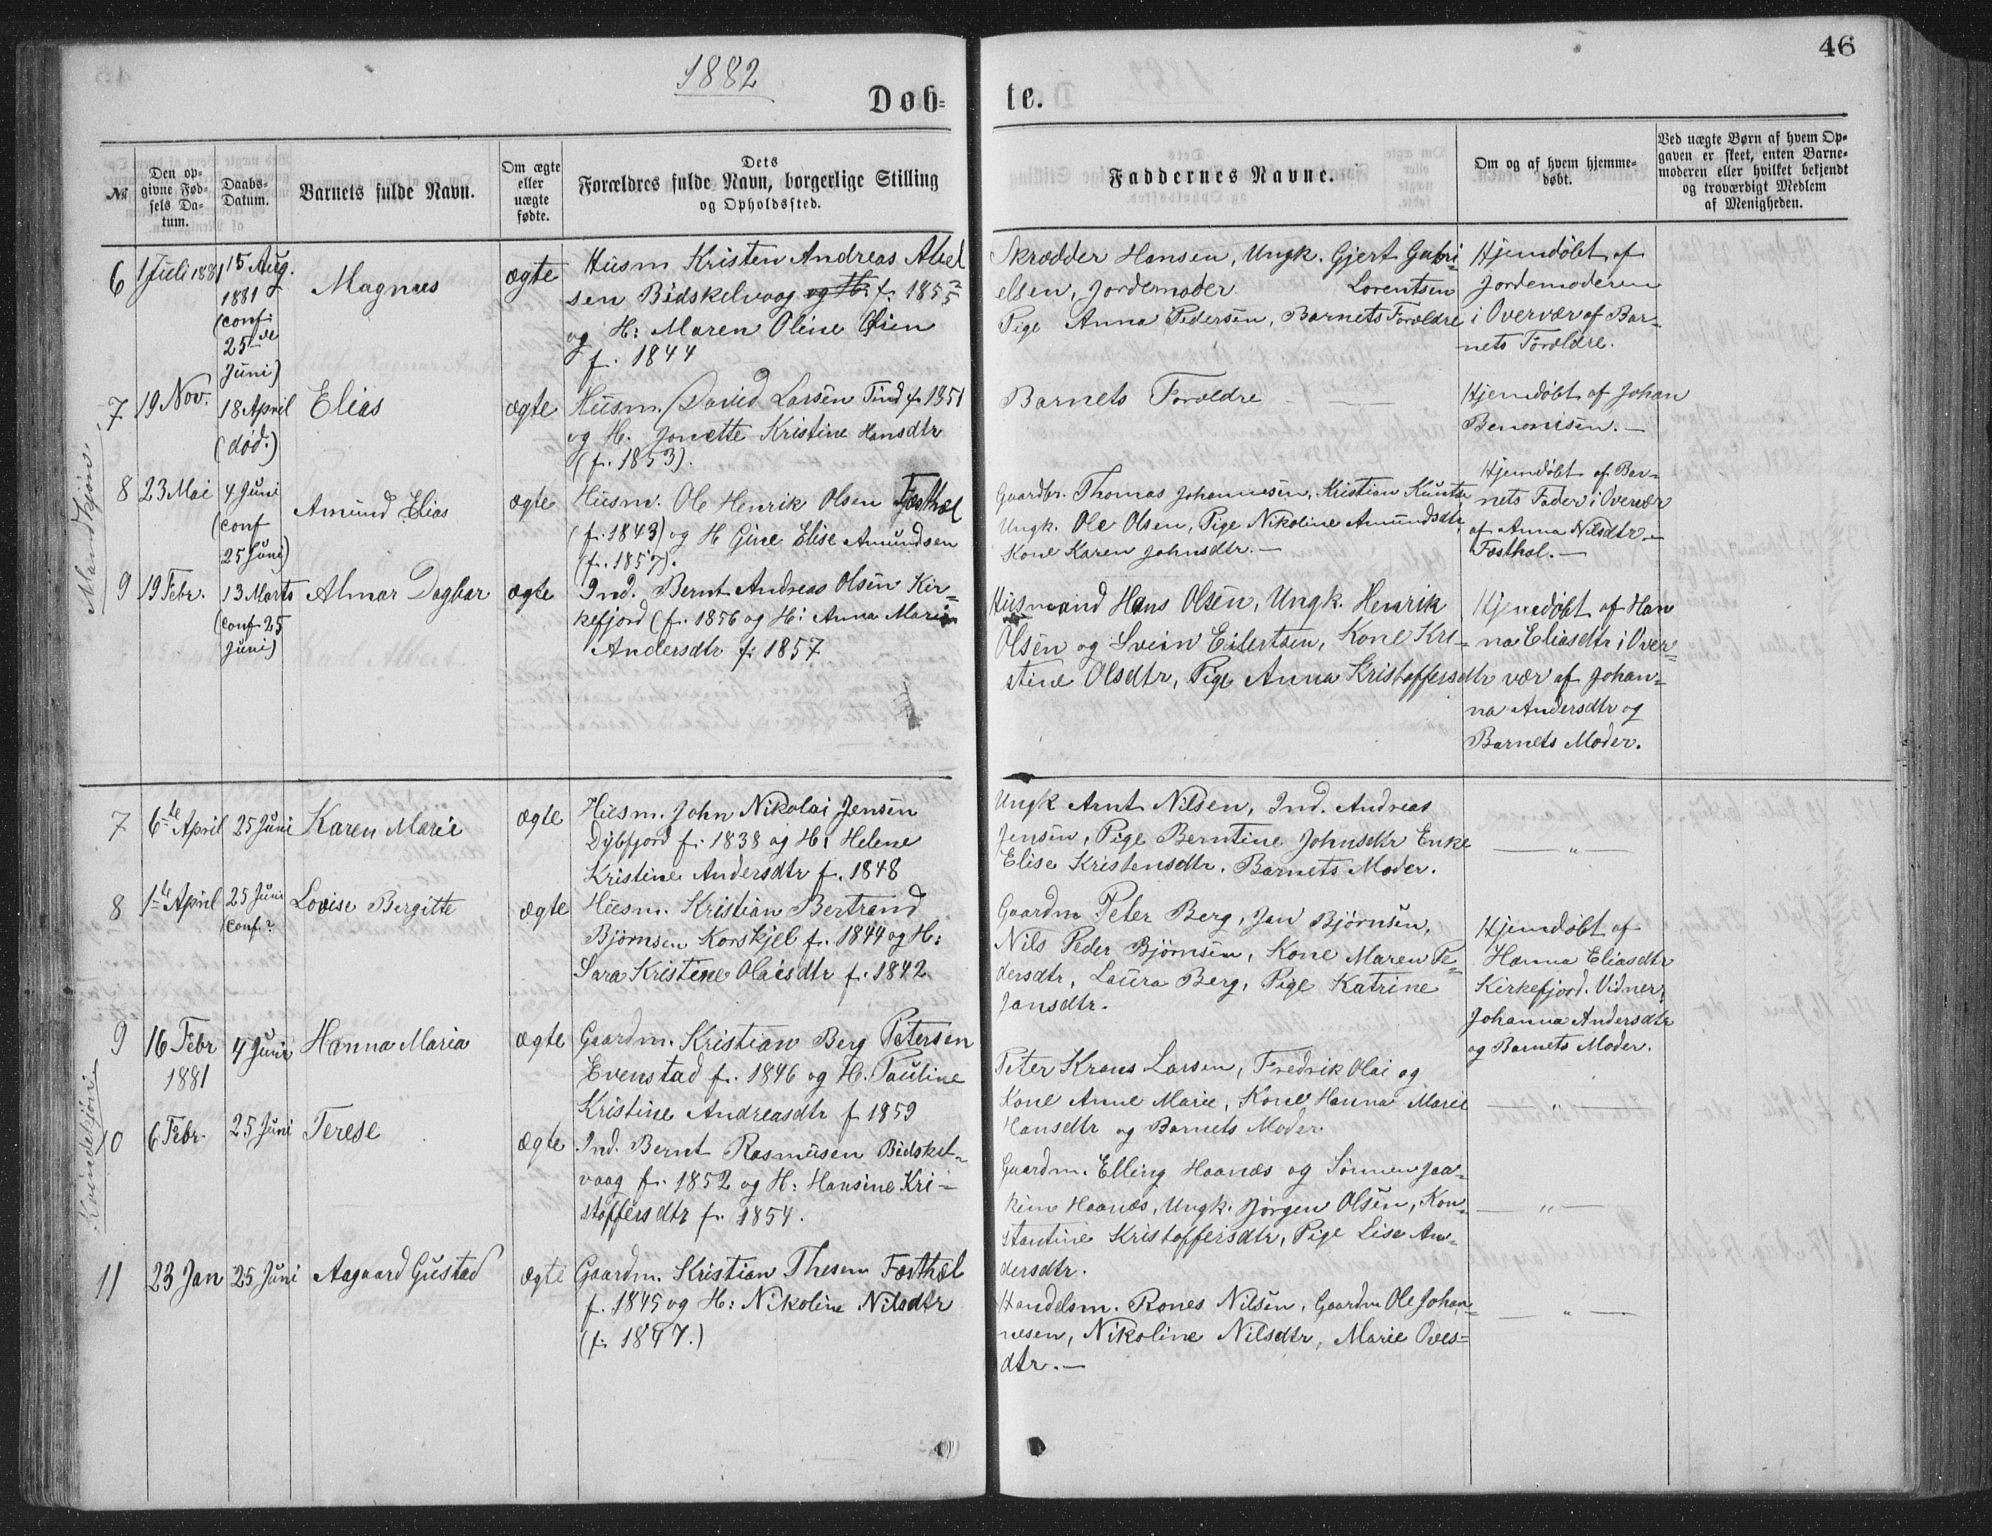 1882
46
Døb-
te.
№
Den op-
givne Fød-
sels Da-
tum.
Daabs-
Datum.
Barnets fulde Navn.
Om ægte
eller
uægte
fødte.
Dets
Forældres fulde Navn, borgerlige Stilling
og Opholdssted.
Faddernes Navne.
Om og af hvem hjemme-
døbt.
Ved uægte Børn af hvem Op-
gaven er skeet, enten Barne-
moderen eller hvilket bekjendt
og troværdigt Medlem
af Menigheden.
Mandkjøn
6
1 Juli 1881
15 Aug.
1881
(conf:
25de
Juni)
Magnus
ægte
Husm Kristen Andreas Abel
sen Bidskelvaag og H: f. 1855
og H: Maren Oline Olsen
f. 1844
Skrædder Hansen, Ungk. Gjert Gabri-
elsen, Jordemoder Lorentsen
Pige Anna Pedersen, Barnets Foroldre
Hjemdøbt af
Jordemoderen
i Overvær af Bar-
nets Foroldre.
7
19 Nov.
18 April
(død.)
Elias
ægte
Husm. David Larsen Tind f. 1851
og H. Jonette Kristine Hansdtr
(f. 1853).
Barnets Foroldre
Hjemdøbt af Johan
Benonisen.-
8
23 Mai
4 Juni
(conf
25 Juni)
Amund Elias
ægte
Husm. Ole Henrik Olsen Fæsthæl
(f. 1843) og H Gine Elise Amundsen
(f. 1857).
Gaardbr. Thomas Johannesen, Kristian
Ungk. Ole Olsen, Pige Nikoline Amundsdtr,
Kone Karen Johnsdtr.-
Hjemdøbt af Bar-
nets Fader i Overvær
af Anna Nilsdtr
Fæsthæl.-
9
19 Febr.
13 Marts
(conf 25
Juni)
Almar Dagbar
ægte
Ind. Bernt Andreas Olsen Kir-
kefjord (f. 1856 og H: Anna Marie
Andersdtr f. 1857
Husmand Hans Olsen, Ungk. Henrik
Olsen og Svein Eilertsen, Kone Kri-
stine Olsdtr, Pige Anna Kristoffersdtr
Hjemdøbt af Han
na Eliasdtr i Over-
vær af Johan-
na Andersdtr og
Barnets Moder.
Kvindekjøn
7
6te April
25 Juni
Karen Marie
ægte
Husm. John Nikolai Jensen
Dybfjord f. 1838 og H: Helene
Kristine Andersdtr f. 1848
Ungk Arnt Nilsen, Ind. Andreas
Jensen, Pige Berntine Johnsdtr Enke
Elise Kristensdtr. Barnets Moder.
— „ —
8
1te April
25 Juni
conf.?
Lovise Bergitte
ægte
Husm. Kristian Bertrand
Bjørnsen Korskjel f. 1844 og H:
Sara Kristine Olaisdtr f. 1842
Gaardm Peter Berg, Jan Bjørnsen,
Nils Peder Bjørnsen, Kone Maren Pe-
dersdtr, Laura Berg, Pige Katrine
Jansdtr.
Hjemdøbt af
Hanna Eliasdtr
Kirkefjord. Vidner,
Johanna Andersdtr
og Barnets Moder.
9
16 Febr
1881
4 Juni
Hanna Maria
ægte
Gaardm. Kristian Berg Petersen
Evenstad f. 1846 og H. Pauline
Kristine Andreasdtr f 1859
Peter Kraus Larsen, Fredrik Olai og
Kone Anne Marie, Kone Hanna Marie
Hansdtr og Barnets Moder.
— „ —
10
6 Febr.
25 Juni
Terese
ægte
Ind. Bernt Rasmusen Bidskel-
vaag f. 1852 og H: Hansine Kri-
stoffersdtr f. 1854.
Gaardm. Elling Haanæs og Sønnen Joa-
kim Haanæs, Ungk. Jørgen Olsen, Kon-
stantine Kristoffersdtr, Pige Lise An-
dersdtr.
— „ —
11
23 Jan
25 Juni
Aagaard Gustad
ægte
Gaardm. Kristian Thesen Fæsthæl
f. 1845 og H: Nikoline Nilsdtr
(f. 1847.)
Handelsm. Rones Nilsen, Gaardm Ole Johan-
nesen, Nikoline Nilsdtr, Marie Oves-
dtr.-
— „ —